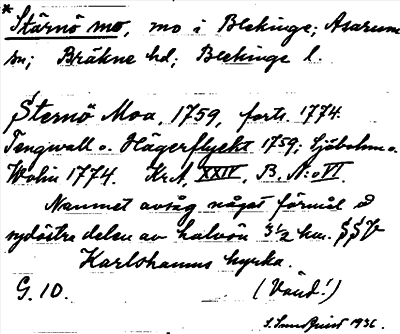 * Stärnö mo, mo i Blekinge; Asarums
sn; Bräkne hd; Blekinge l.
Sternö Moa, 1759, forts. 1774.
Tengwall o. Hägerflycht 1759; Sjöbohm o.
Wohn 1774. KrA, XXIV, B, N:o VI.
Namnet avsåg något föremål å
sydöstra delen av halvön 3 1/2 km. SSV
Karlshamns kyrka.
G. 10. (Vänd!)
S. Sundquist 1936.